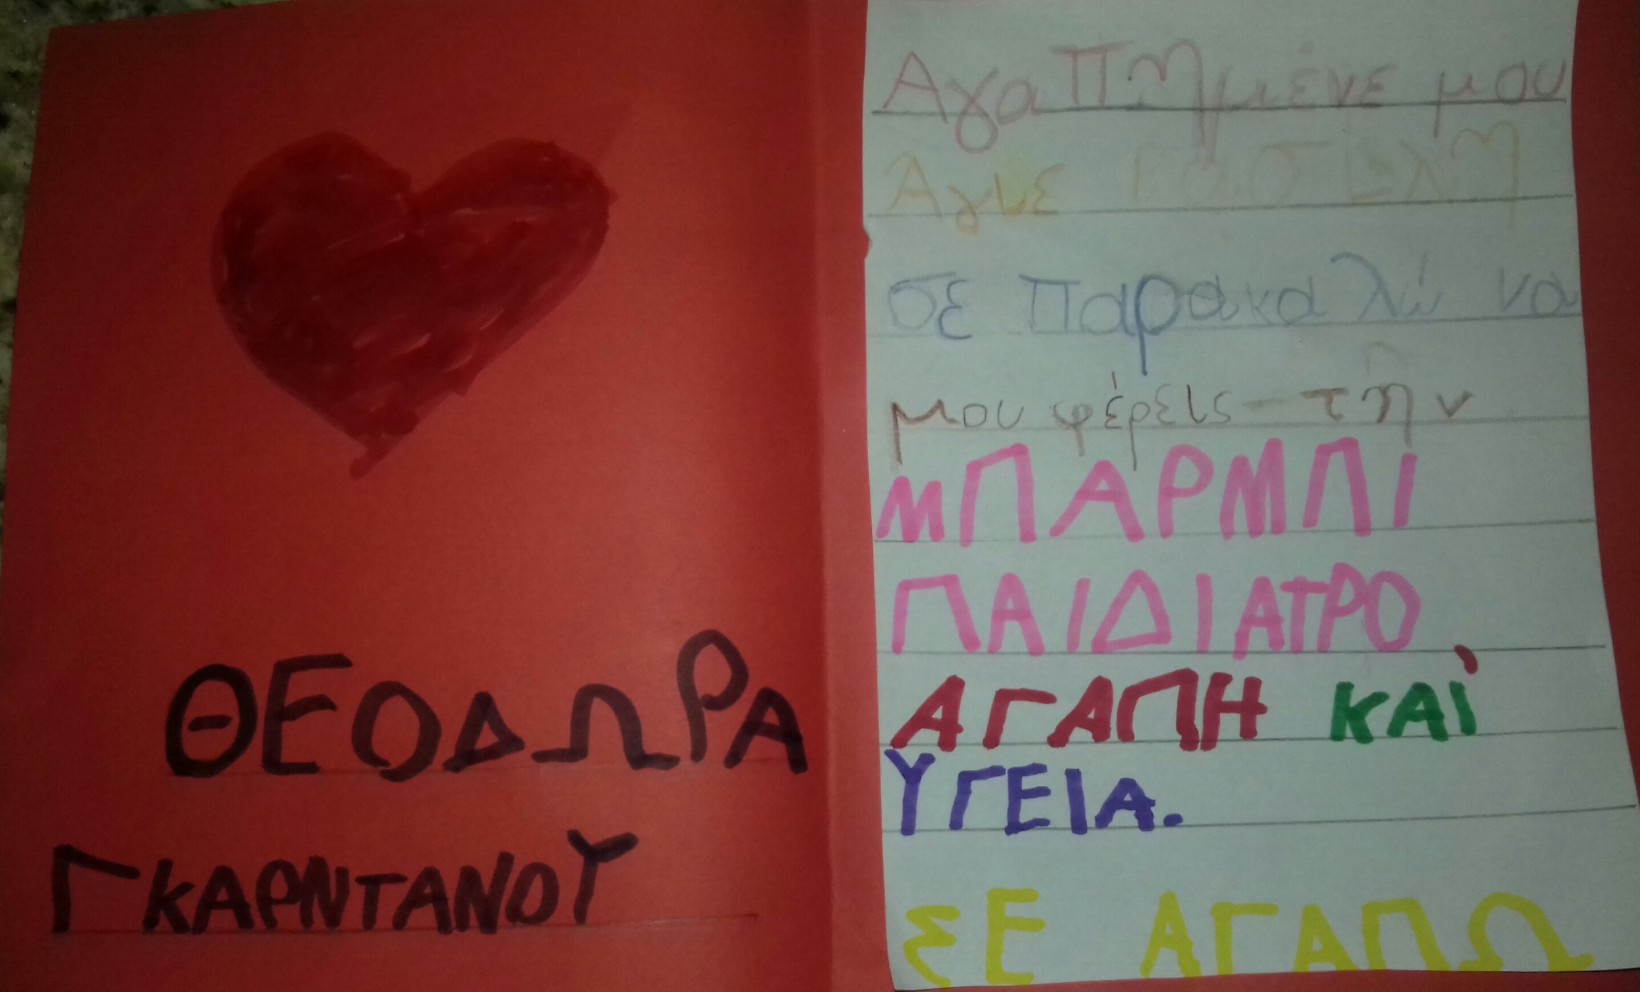 ΘΕΟΔΩΡΑ
ΓΚΑΡΝΤΑΝΟΥ
ΑγαΠημένε μου
Αγιε
σε Παρακαλώ να
μου φέρεις την
ΜΠΑΡΜΠΙ
ΠΑΙΔΙΑΤΡΟ
ΑΓΑΠΗ ΚΑΙ
ΥΓΕΙΑ.
ΣΕ ΑΓΑΠΩ